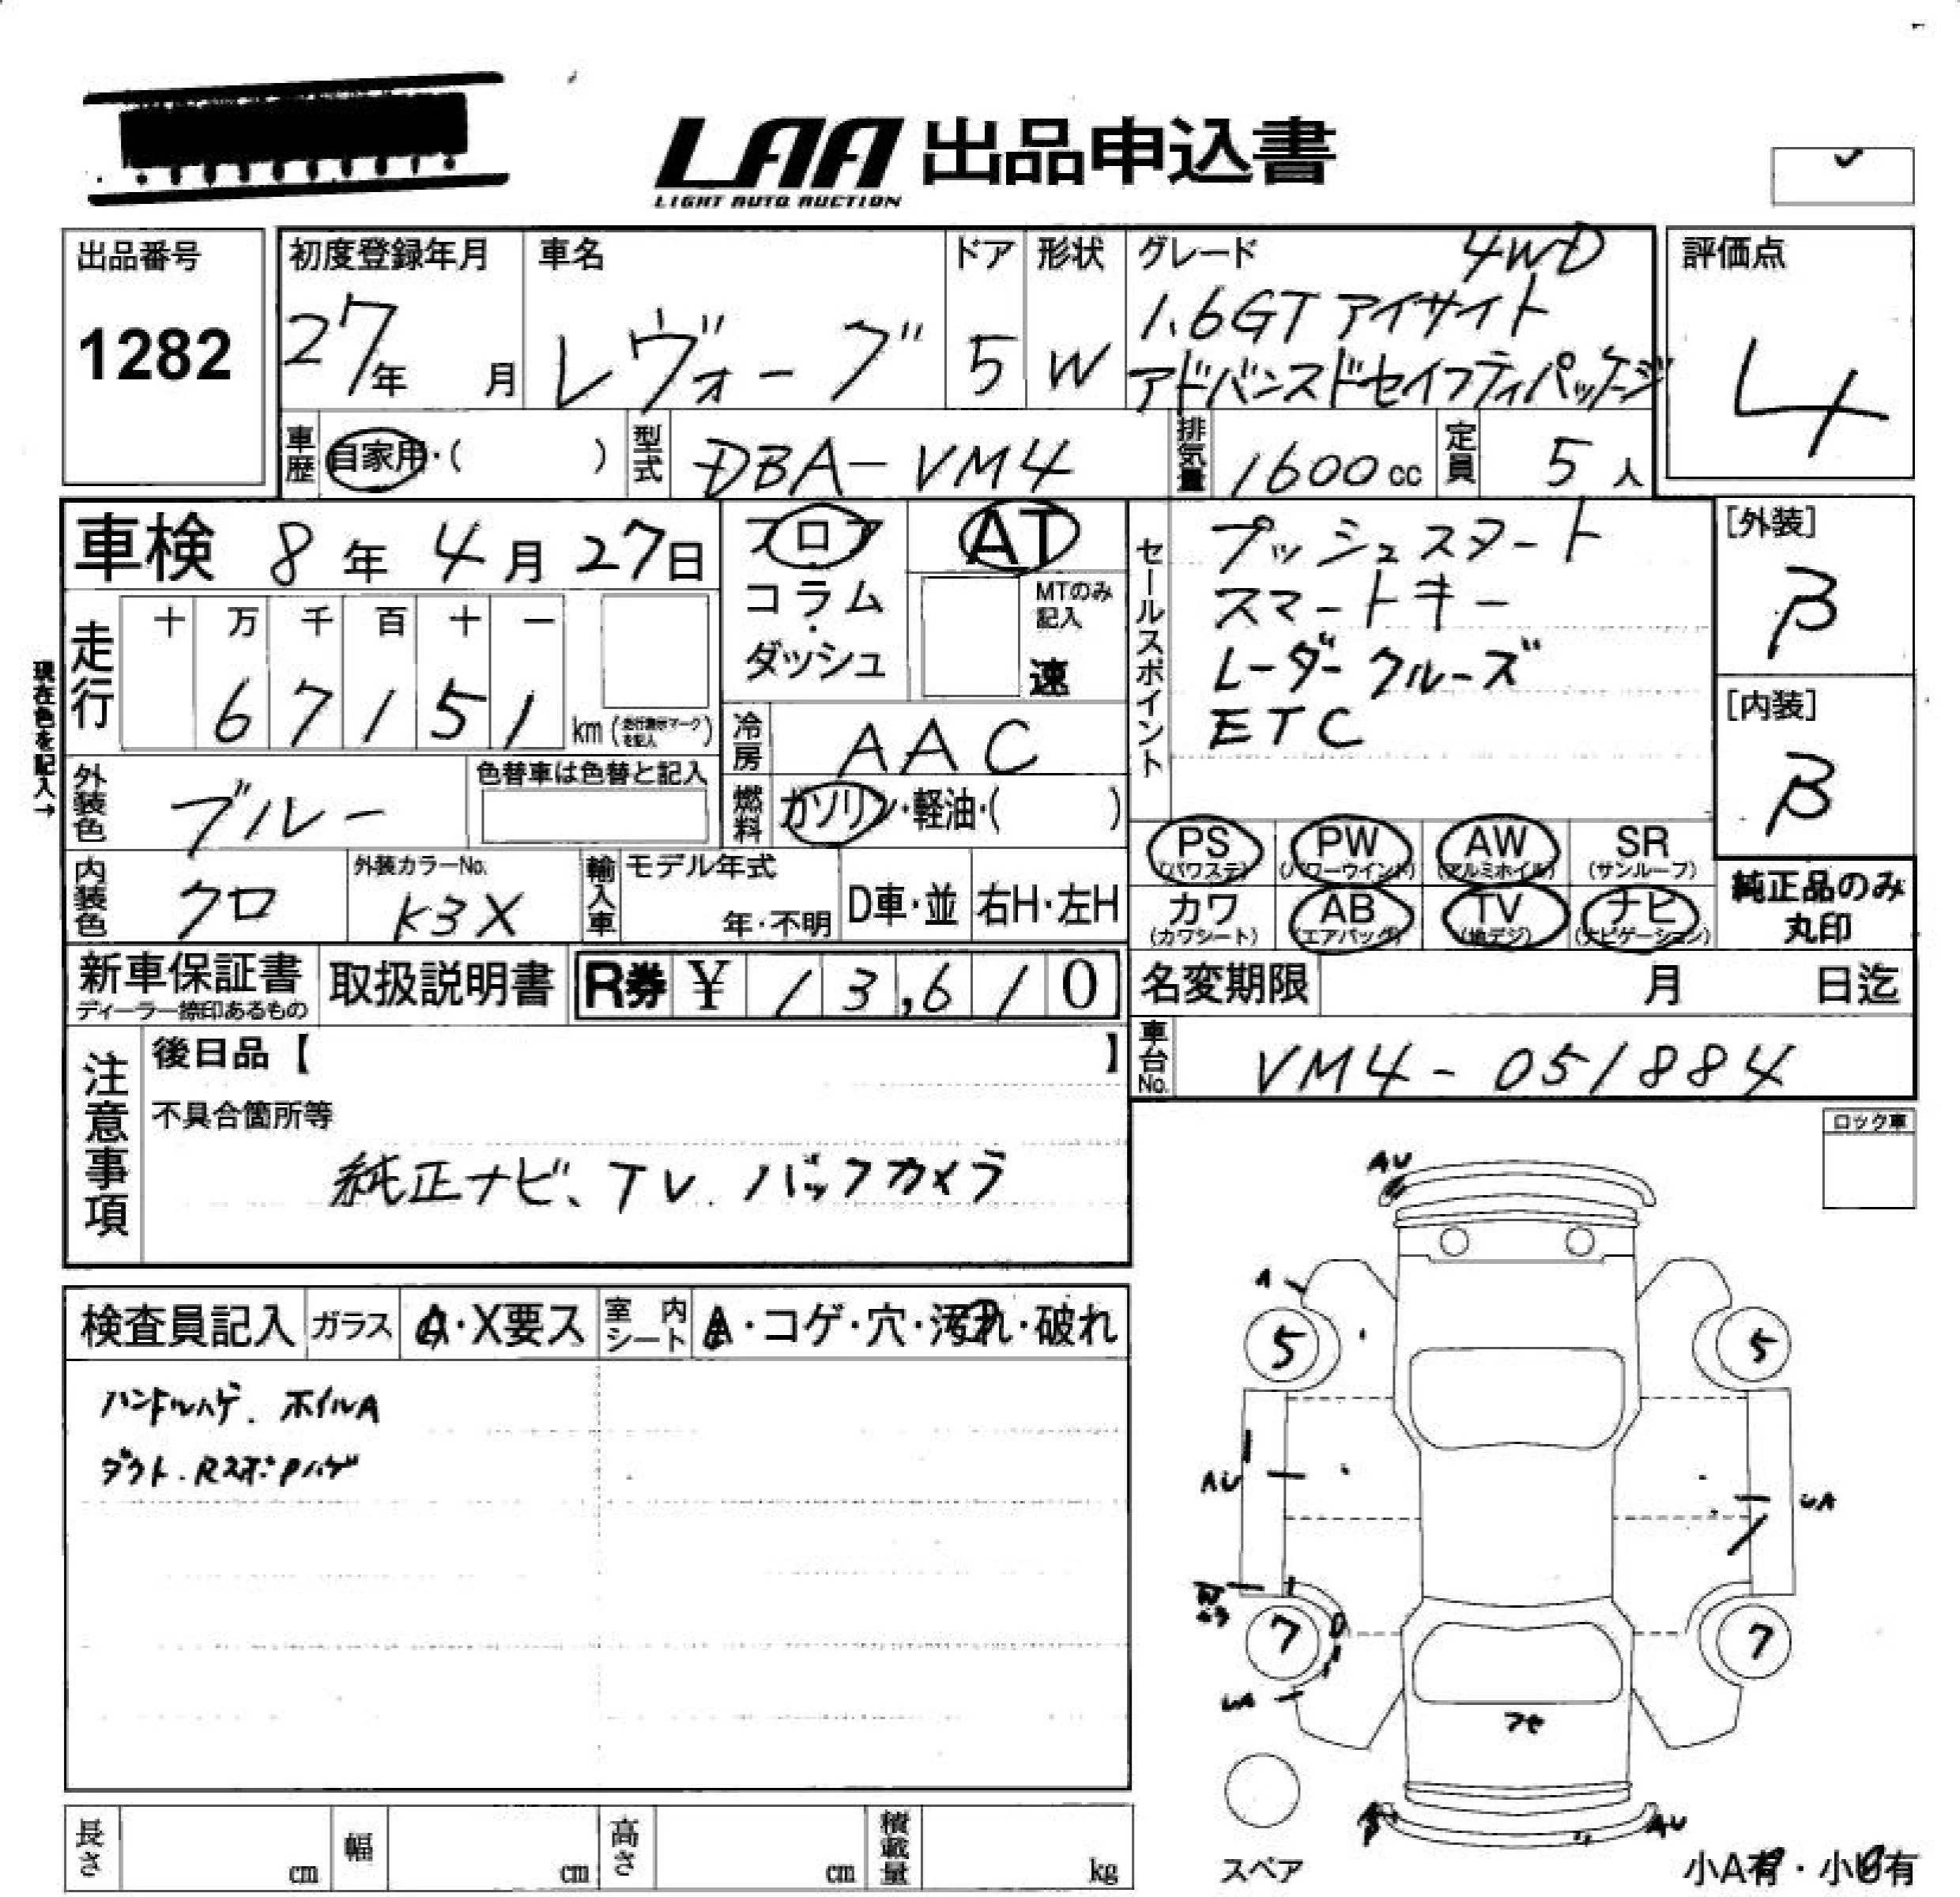 LAA 出品申込書
LIGHT AUTO AUCTION
出品番号
1282
初度登録年月
27年 月
車名
レヴォーグ
ドア
5
形状
W
グレード 4WD
1.6GT アイサイト
アドバンスドセイフティパッケージ
評価点
4
車歴 自家用・( )
型式 DBA-VM4
排気量 1600cc
定員 5人
車検 8年 4月 27日
フロア
コラム
・
ダッシュ
AT
MTのみ
記入
速
セールスポイント
プッシュスタート
スマートキー
レーダークルーズ
ETC
[外装]
B
[内装]
B
現在色を記入→
走行
十 万 千 百 十 一
6 7 1 5 1 km (走行表示マークを記入)
冷房 AAC
外装色 ブルー
色替車は色替と記入
燃料 ガソリン・軽油・( )
PS (パワステ)
PW (パワーウインド)
AW (アルミホイル)
SR (サンルーフ)
内装色 クロ
外装カラーNo.
K3X
輸入車
モデル年式
年・不明
D車・並
右H・左H
カワ (カワシート)
AB (エアバッグ)
TV (地デジ)
ナビ (ナビゲーション)
純正品のみ
丸印
新車保証書
ディーラー捺印あるもの
取扱説明書
R券 ¥ 13,610
名変期限 月 日迄
車台No. VM4-051884
注意事項
後日品【 】
不具合箇所等
純正ナビ、TV. バックカメラ
ロック車
検査員記入
ガラス A・X要ス
室内シート A・コゲ・穴・汚れ・破れ
ハンドルハゲ. ホイルA
ダクト.RスポPハゲ
AU
A
5
5
AU
UA
7
7
UA
フセ
AU
スペア
小A有・小U有
長さ cm
幅 cm
高さ cm
積載量 kg